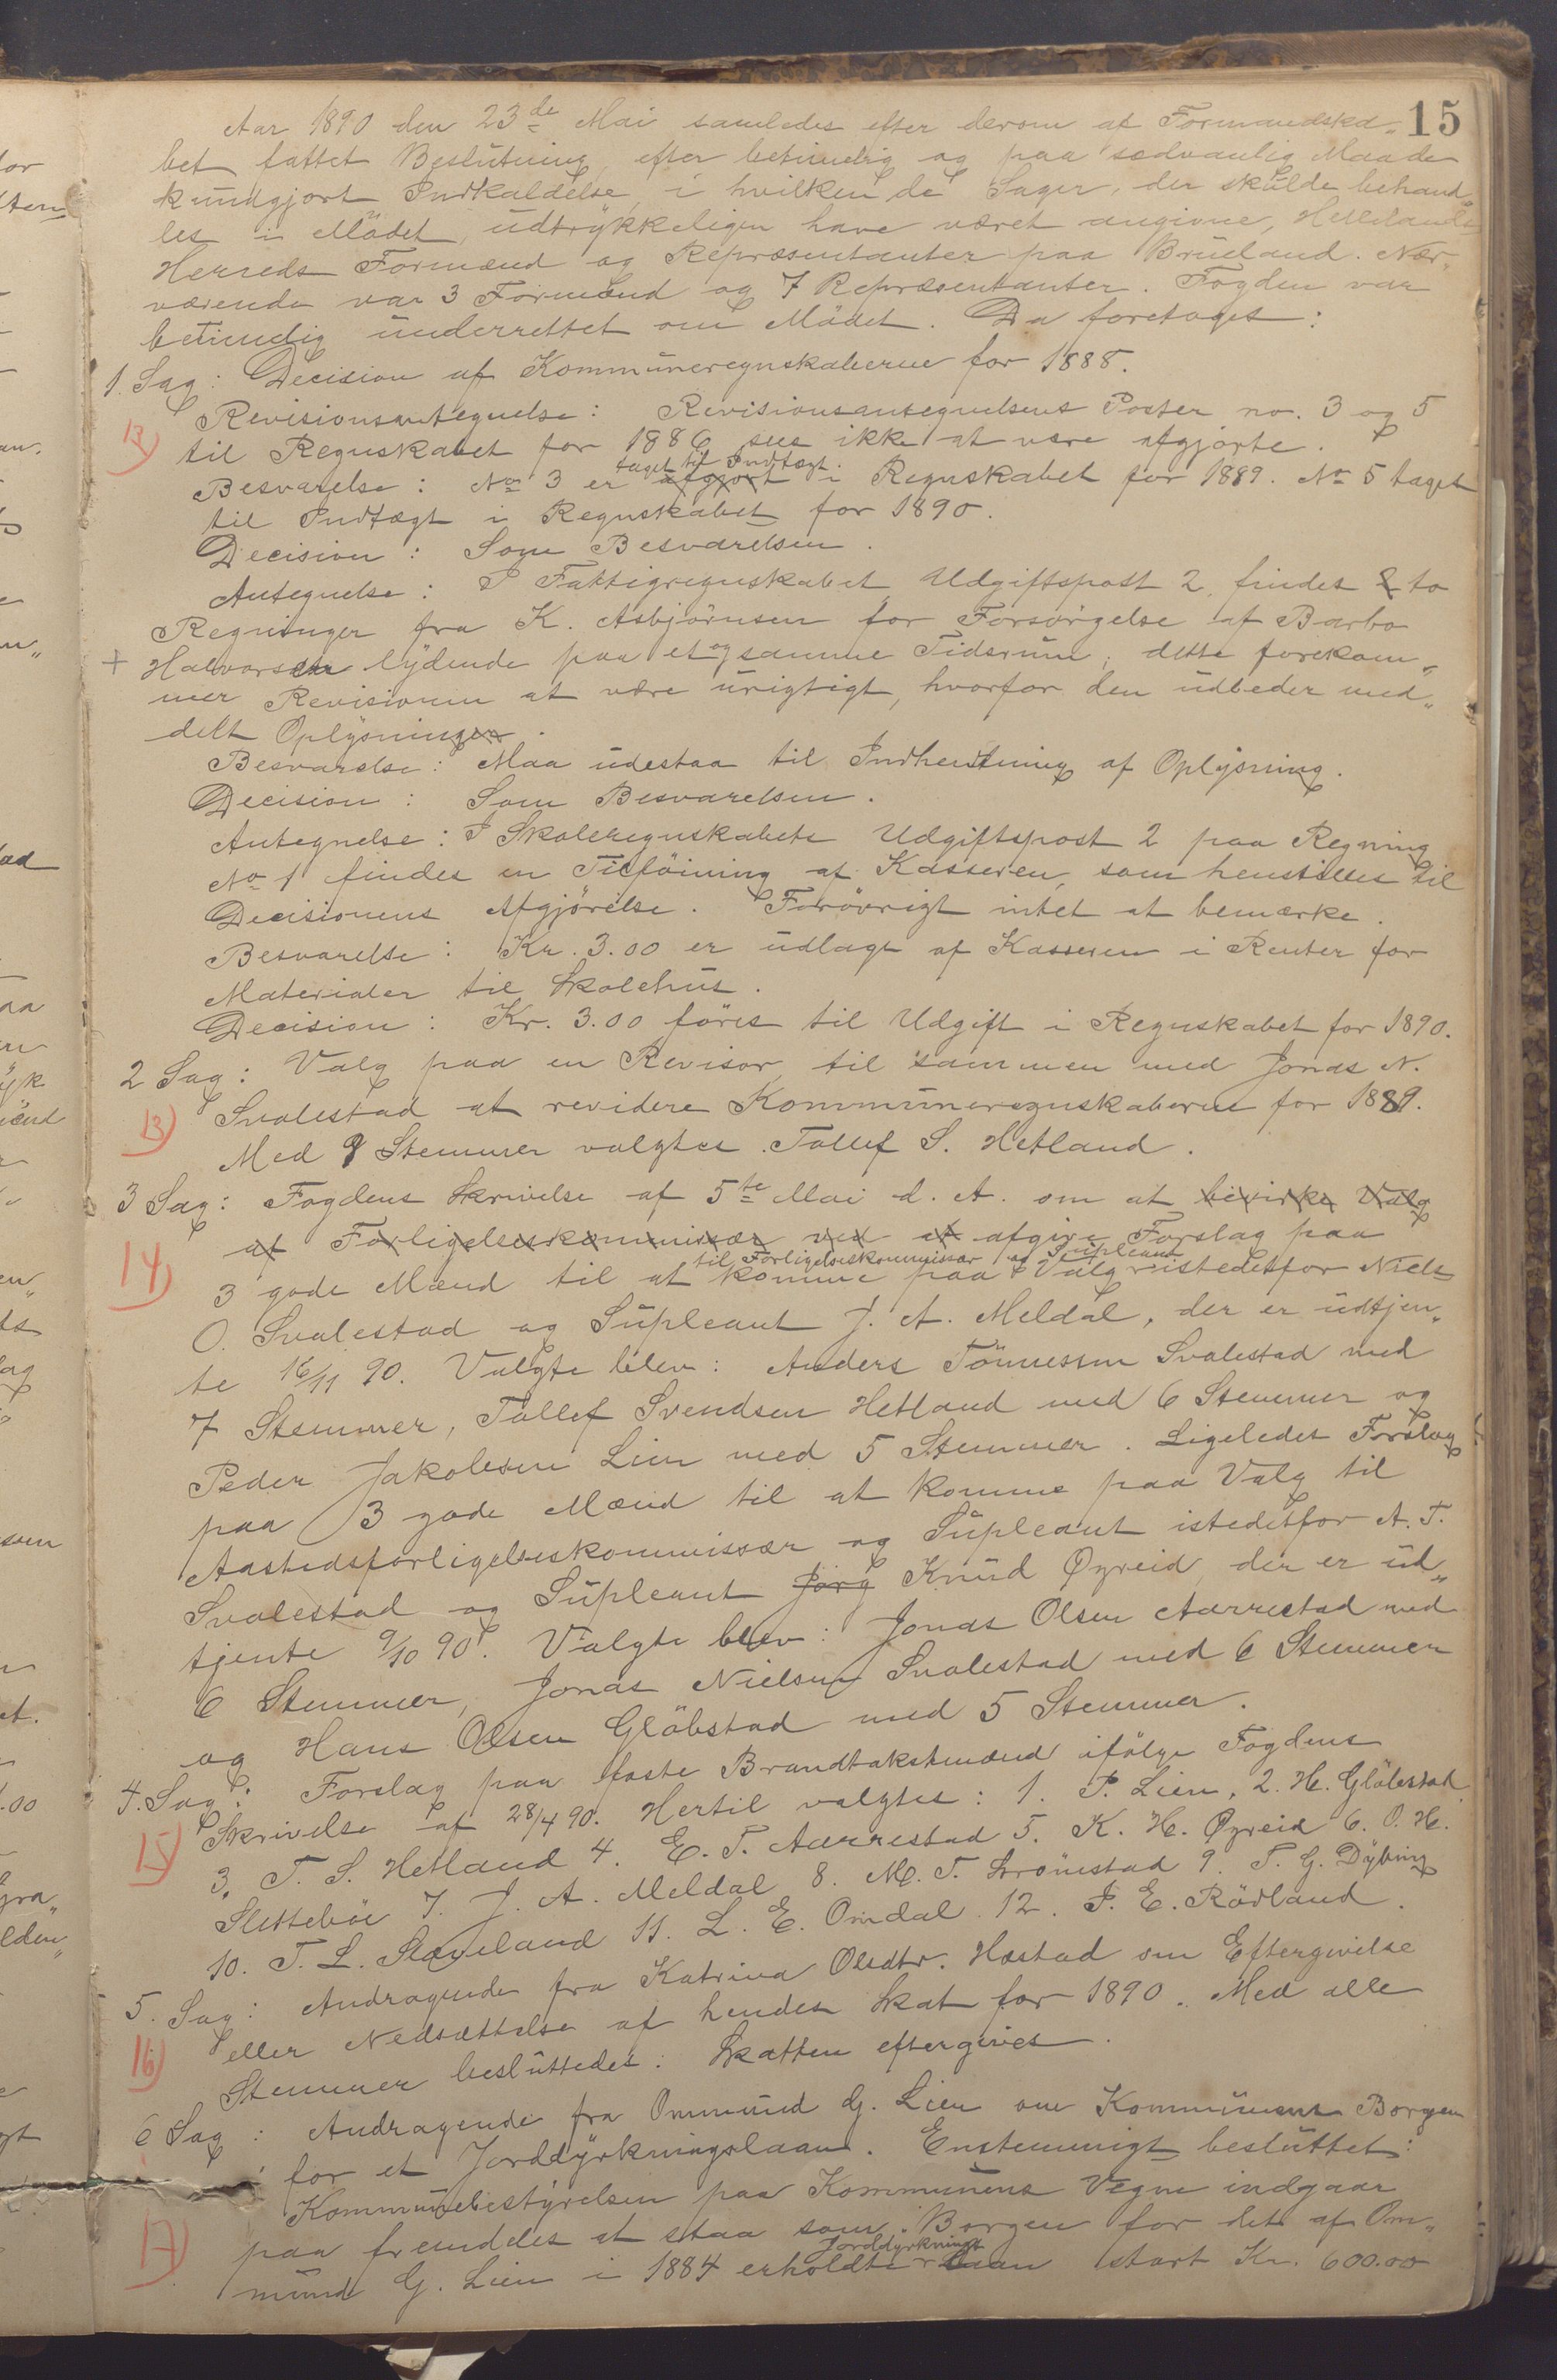 15
Aar 1890 den 23de Mai samledes efter derom af Formandska„
bet fattet Beslutning, efter betimelig og paa sædvanlig Maade
kundgjort Indkaldelse, i hvilken de Sager, der skulde behand„
les i Mödet, udtrykkeligen have været angivne, Hetlands
Herreds Formænd og Repræsentanter paa Brueland. Nær„
værende var 3 Formænd og 7 Repræsentanter. Fogden var
betimelig underrettet om Mödet. Da foretoges:
1. Sag: Decision af Kommuneregnskaberne for 1888.
Revisionsantegnelse: Revisionsantegnelsens Poster no. 3 og 5
12)
til Regnskabet for 1886 sees ikke at være afgjorte.
taget til Indtægt
Besvarelse: No 3 er afgjort i Regnskabet for 1889. No 5 taget
til Indtægt i Regnskabet for 1890.
Decision: Som Besvarelsen.
Antegnelse: I Fattigregnskabet, Udgiftspost 2, findes 2 to
Regninger fra K. Asbjörnsen for Forsörgelse af Barbo
+ Halvorsen lydende paa et og samme Tidsrum; dette forekom„
mer Revisionen at være urigtigt, hvorfor den udbeder med„
delt Oplysningen.
Besvarelse: Maa udestaa til Indhentning af Oplysning.
Decision: Som Besvarelsen.
Antegnelse: I Skoleregnskabets Udgiftspost 2 paa Regning
No 1 findes en Tilföining af Kasseren, som henstilles til
Decisionens Afgjörelse. Forövrigt intet at bemærke.
Besvarelse: Kr. 3.00 er udlagt af Kasseren i Renter for
Materialer til Skolehus.
Decision: Kr. 3.00 föres til Udgift i Regnskabet for 1890.
2 Sag: Valg paa en Revisor til sammen med Jonas N.
13)
Svalestad at revidere Kommuneregnskaberne for 1889.
Med 9 Stemmer valgtes Tollef S. Hetland.
3 Sag: Fogdens Skrivelse af 5te Mai d. A. om at bevirke Valg
af Forligelseskommissær ved at afgive Forslag paa
14)
til Forligelseskommissær og Supleant
3 gode Mænd til at komme paa Valg istedetfor Niels
O. Svalestad og Supleant J. A. Meldal, der er udtjen„
te 16/11 90. Valgte blev: Anders Tönnessen Svalestad med
7 Stemmer, Tollef Svendsen Hetland med 6 Stemmer og
Peder Jakobsen Lien med 5 Stemmer. Ligeledes Forslag
paa 3 gode Mænd til at komme paa Valg til
Aastedsforligelseskommissær og Supleant istedetfor A. T.
Svalestad og Supleant Jörg Knud Øgreid, der er ud„
tjente 9/10 90. Valgte blev: Jonas Olsen Aarrestad med
6 Stemmer, Jonas Nielsen Svalestad med 6 Stemmer
og Hans Olsen Glöbstad med 5 Stemmer.
4. Sag: Forslag paa faste Brandtakstmænd ifölge Fogdens
15)
Skrivelse af 28/4 90. Hertil valgtes: 1. P. Lien, 2. H. Glöbstad
3. T. S. Hetland 4. E. T. Aarrestad 5. K. H. Øgreid 6. O. H.
Sletteböe 7. J. A. Meldal 8. M. T. Grönestad 9. T. G. Dybing
10. T. L. Skaveland 11. L. E. Omdal 12. P. E. Rödland.
5. Sag: Andragende fra Katrina Olsdtr. Hæstad om Eftergivelse
16)
eller Nedsættelse af hendes Skat for 1890. Med alle
Stemmer besluttedes: Skatten eftergives.
6 Sag: Andragende fra Ommund G. Lien om Kommunens Borgen
for et Jorddyrkningslaan. Enstemmigt besluttet:
Kommunebestyrelsen paa Kommunens Vegne indgaar
17)
paa fremdeles at staa som Borgen for det af Om„
Jorddyrknings
mund G. Lien i 1884 erholdte Laan stort Kr. 600.00